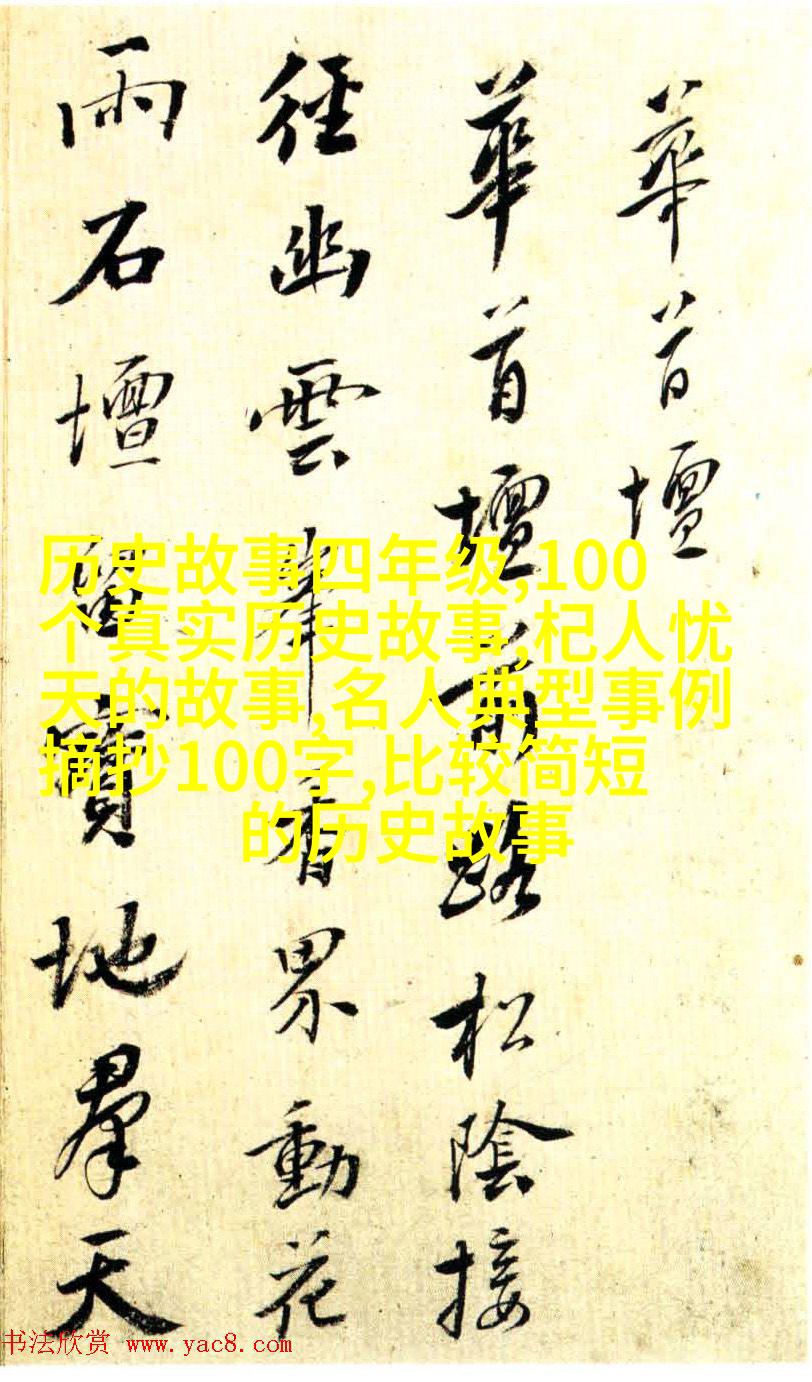 華首壇
華首壇前路松陰接
徑幽雲香界動花
雨石壇留寶地羣天
历史故事四年级,100
个真实历史故事,杞人忧
天的故事,名人典型事例
摘抄100字,比较简短
的历史故事
书法欣赏 www.yac8.com